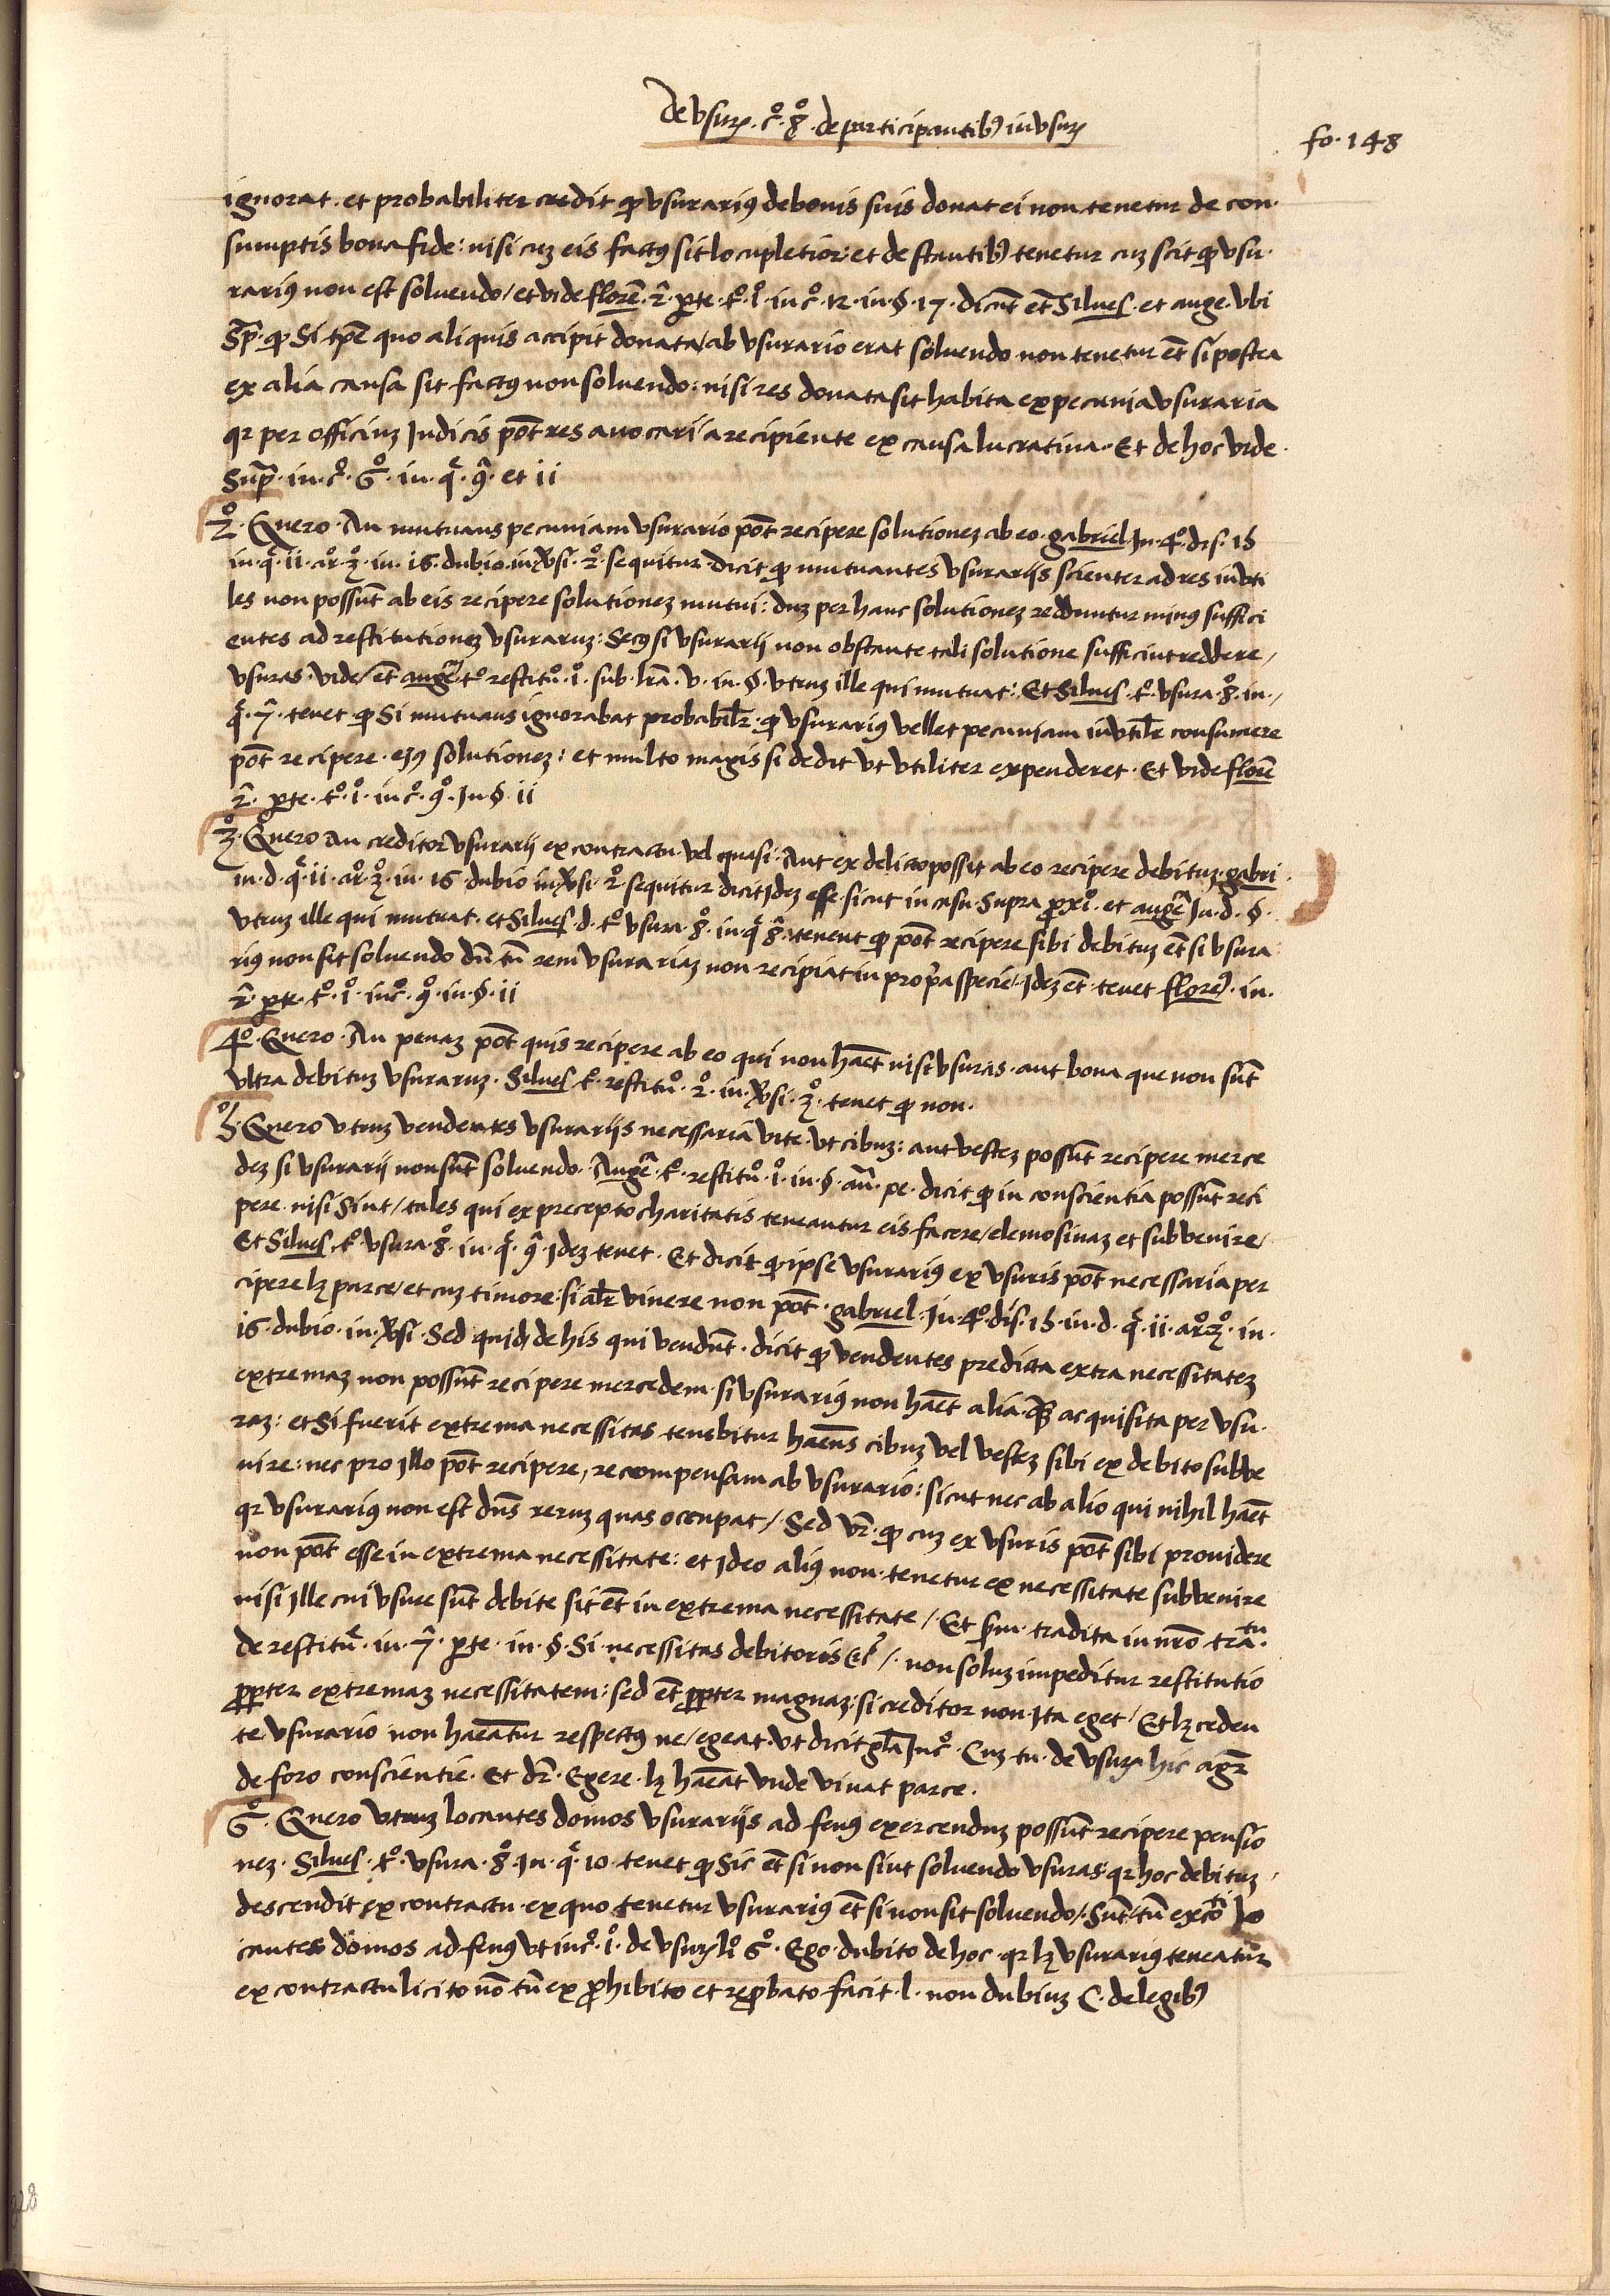 de vsurꝭ. cº. 8º. de participantibꝰ in vsurꝭ
fo. 148
ignorat. et probabiliter credit ꝙ vsurariꝰ de bonis suis donat ei non tenetur de con
sumptis bona fide: nisi cuz eis factꝰ sit locupletior: et de stantibꝰ tenetur cuz scit ꝙ vsu
rariꝰ non est soluendo / et vide florē. 2ᵃ. ꝑte. tº. iº. in cº. 12. in. §. 17. dicūt et̄ Siluẽs. et ange. vbi
Sup̄ᵃ. ꝙ Si tp̄e quo aliquis accipit donata / ab vsurario erat soluendo non tenetur et̄ si postea
ex alia causa sit factꝰ non soluendo: nisi res donata sit habita ex pecunia vsuraria
qꝛ per officiuz Iudicis pōt res auocari / a recipiente ex causa lucratiua. Et de hoc vide
Sup̄ᵃ. in. cº. 6º. in. q̄. 9ᵃ. et ii
2º. Quero. An mutuans pecuniam vsurario pōt recipere solutionez ab eo. gabriel In. 4º. dis. 15
in. q̄. ii. ar̄. 3º. in. 16. dubio. in v̄si. 2º. sequitur dicit ꝙ mutuantes vsurarijs scienter ad res invti
les non possūt ab eis recipere solutionez mutui: duz per hanc solutionez redduntur minꝰ suffici
entes ad restitutionez vsuraruz: Secꝰ si vsurarij non obstante tali solutione sufficiunt reddere /
vsuras. vide / et̄ angeᵃ. tº. restituº. iº. sub. lrā. v. in. §. vtruz ille qui mutuat: Et Silues. tº. vsura. 8º. in. /
q̄. 7ᵃ. tenet ꝙ Si mutuans ignorabat probabilr̄. ꝙ vsurariꝰ vellet pecuniam invtilr̄ consumere
pōt recipere. ejꝰ solutionez: et multo magis si dedit vt vtiliter expenderet. Et vide florē
2ᵃ. ꝑte. tº. iº. in cº. 9º. In §. ii
3º. Quero an creditor vsurarij ex contractu vel quasi. Aut ex delicto possit ab eo recipere debituz. gabri.
in. d. q̄. ii. ar̄. 3º. in. 16 dubio in v̄si. 2º. sequitur dicit Idez esse. sicut in casu. Supra ꝓxi. et angeᵃ In. d. §.
vtruz ille qui mutuat. et Silues. d. tº vsura. 8º. in. q̄ 8ᵃ. tenent ꝙ pōt recipere sibi debituz et̄ si vsura
riꝰ non sit soluendo dū tn̄ rem vsurariaz non recipiat in propᵃ specie / Idez et̄. tenet florē. in.
2ᵃ. ꝑte. tº. iº. in cº. 9º. in. §. ii
4º. Quero. An penaz pōt quis recipere ab eo qui non haēt nisi vsuras. aut bona que non sūt
vltra debituz vsuraruz. Silues tº. restituº. 2º. in. v̄si. 3º. tenet ꝙ non.
5º. Quero vtruz vendentes vsurarijs necessaria vite. vt cibuz: aut vestez possūt recipere merce
dez si vsurarij non sūt soluendo. Angeᵃ. tº. restituº. iº. in. §. an̄. pe. dicit ꝙ in conscientia possūt reci
pere. nisi Sint / tales qui ex precepto charitatis teneantur eis facere / elemosinaz et subvenire /
Et Silues. tº. vsura. 8º. in. q̄. 9ᵃ. Idez tenet. Et dicit ꝙ ipse vsurariꝰ ex vsuris pōt necessaria per
cipere lꝫ parce / et cuz timore: si alr̄ viuere non pōt. gabriel. In. 4º. dis. 15. in. d. q̄. ii. ar̄. 3º. in.
16. dubio. in. v̄si. Sed quid / de his qui vendūt. dicit ꝙ vendentes predicta extra necessitatez
extremaz non possūt recipere mercedem si vsurariꝰ non haēt alia. qᵃꝫ acquisita per vsu
raz: et Si fuerit extrema necessitas tenebitur haēns cibuz vel vestez sibi ex debito subve
nire: nec pro Illo pōt recipere / recompensam ab vsurario: sicut nec ab alio qui nihil haēt
qꝛ vsurariꝰ non est dn̄s reruz quas occupat / Sed vr̄. ꝙ cuz ex vsuris pōt sibi prouidere
non pōt esse in extrema necessitate: et Ideo aliꝰ non. tenetur ex necessitate subvenire
nisi Ille cui vsure sūt debite sit et̄ in extrema necessitate / Et s̄m. tradita in nr̄o traᵗᵘ.
de restitue. in. 7ᵃ. ꝑte. in. §. Si necessitas debitoris &c̄ /. non soluz impeditur restitutio
ꝓpter extremaz necessitatem: sed et̄ ꝓpter magnaz: si creditor non Ita eget / Et lꝫ ceden
te vsurario non haēatur respectꝰ ne / egeat. vt dicit gla᷑ In cº. Cuz tu. de vsurꝭ hic agr̄
de foro conscientie. Et dr̄. Egere. lꝫ haēat vnde viuat parce.
6º. Quero vtruz locantes domos vsurarijs ad fenꝰ exercenduz possūt recipere pensio
nez. Silues. tº. vsura. 8º. In. q̄. 10. tenet ꝙ Sic et̄ si non sint soluendo vsuras: qꝛ hoc debituz
descendit ex contractu. ex quo tenetur vsurariꝰ et̄ si non sit soluendo /. Sūt / tn̄ excōᵗⁱ lo
cantes domos ad fenꝰ vt in cº. iº. de vsurꝭ liº 6º. Ego. dubito de hoc. qꝛ lꝫ vsurariꝰ teneatur
ex contractu licito nō tn̄ ex ꝓhibito et reꝓbato facit. l. non dubiuz C. de legibꝰ